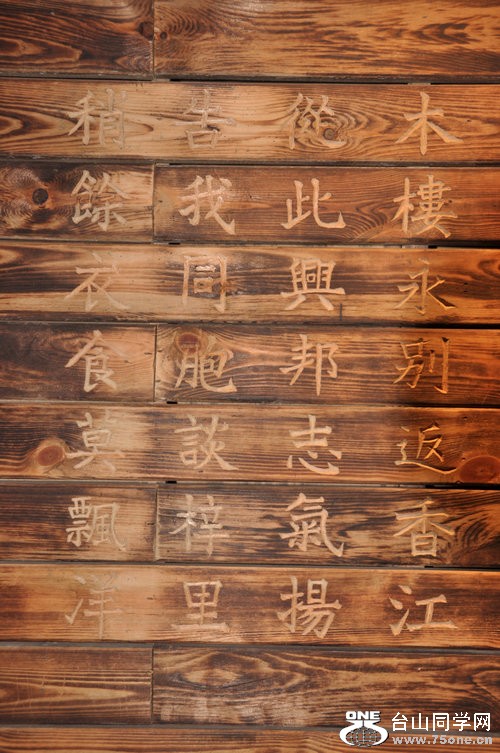 木樓永別返香江
從此興邦志氣揚
告我同胞談梓里
稍餘衣食莫飄洋
ONE 台山同学网
www.75one.cn